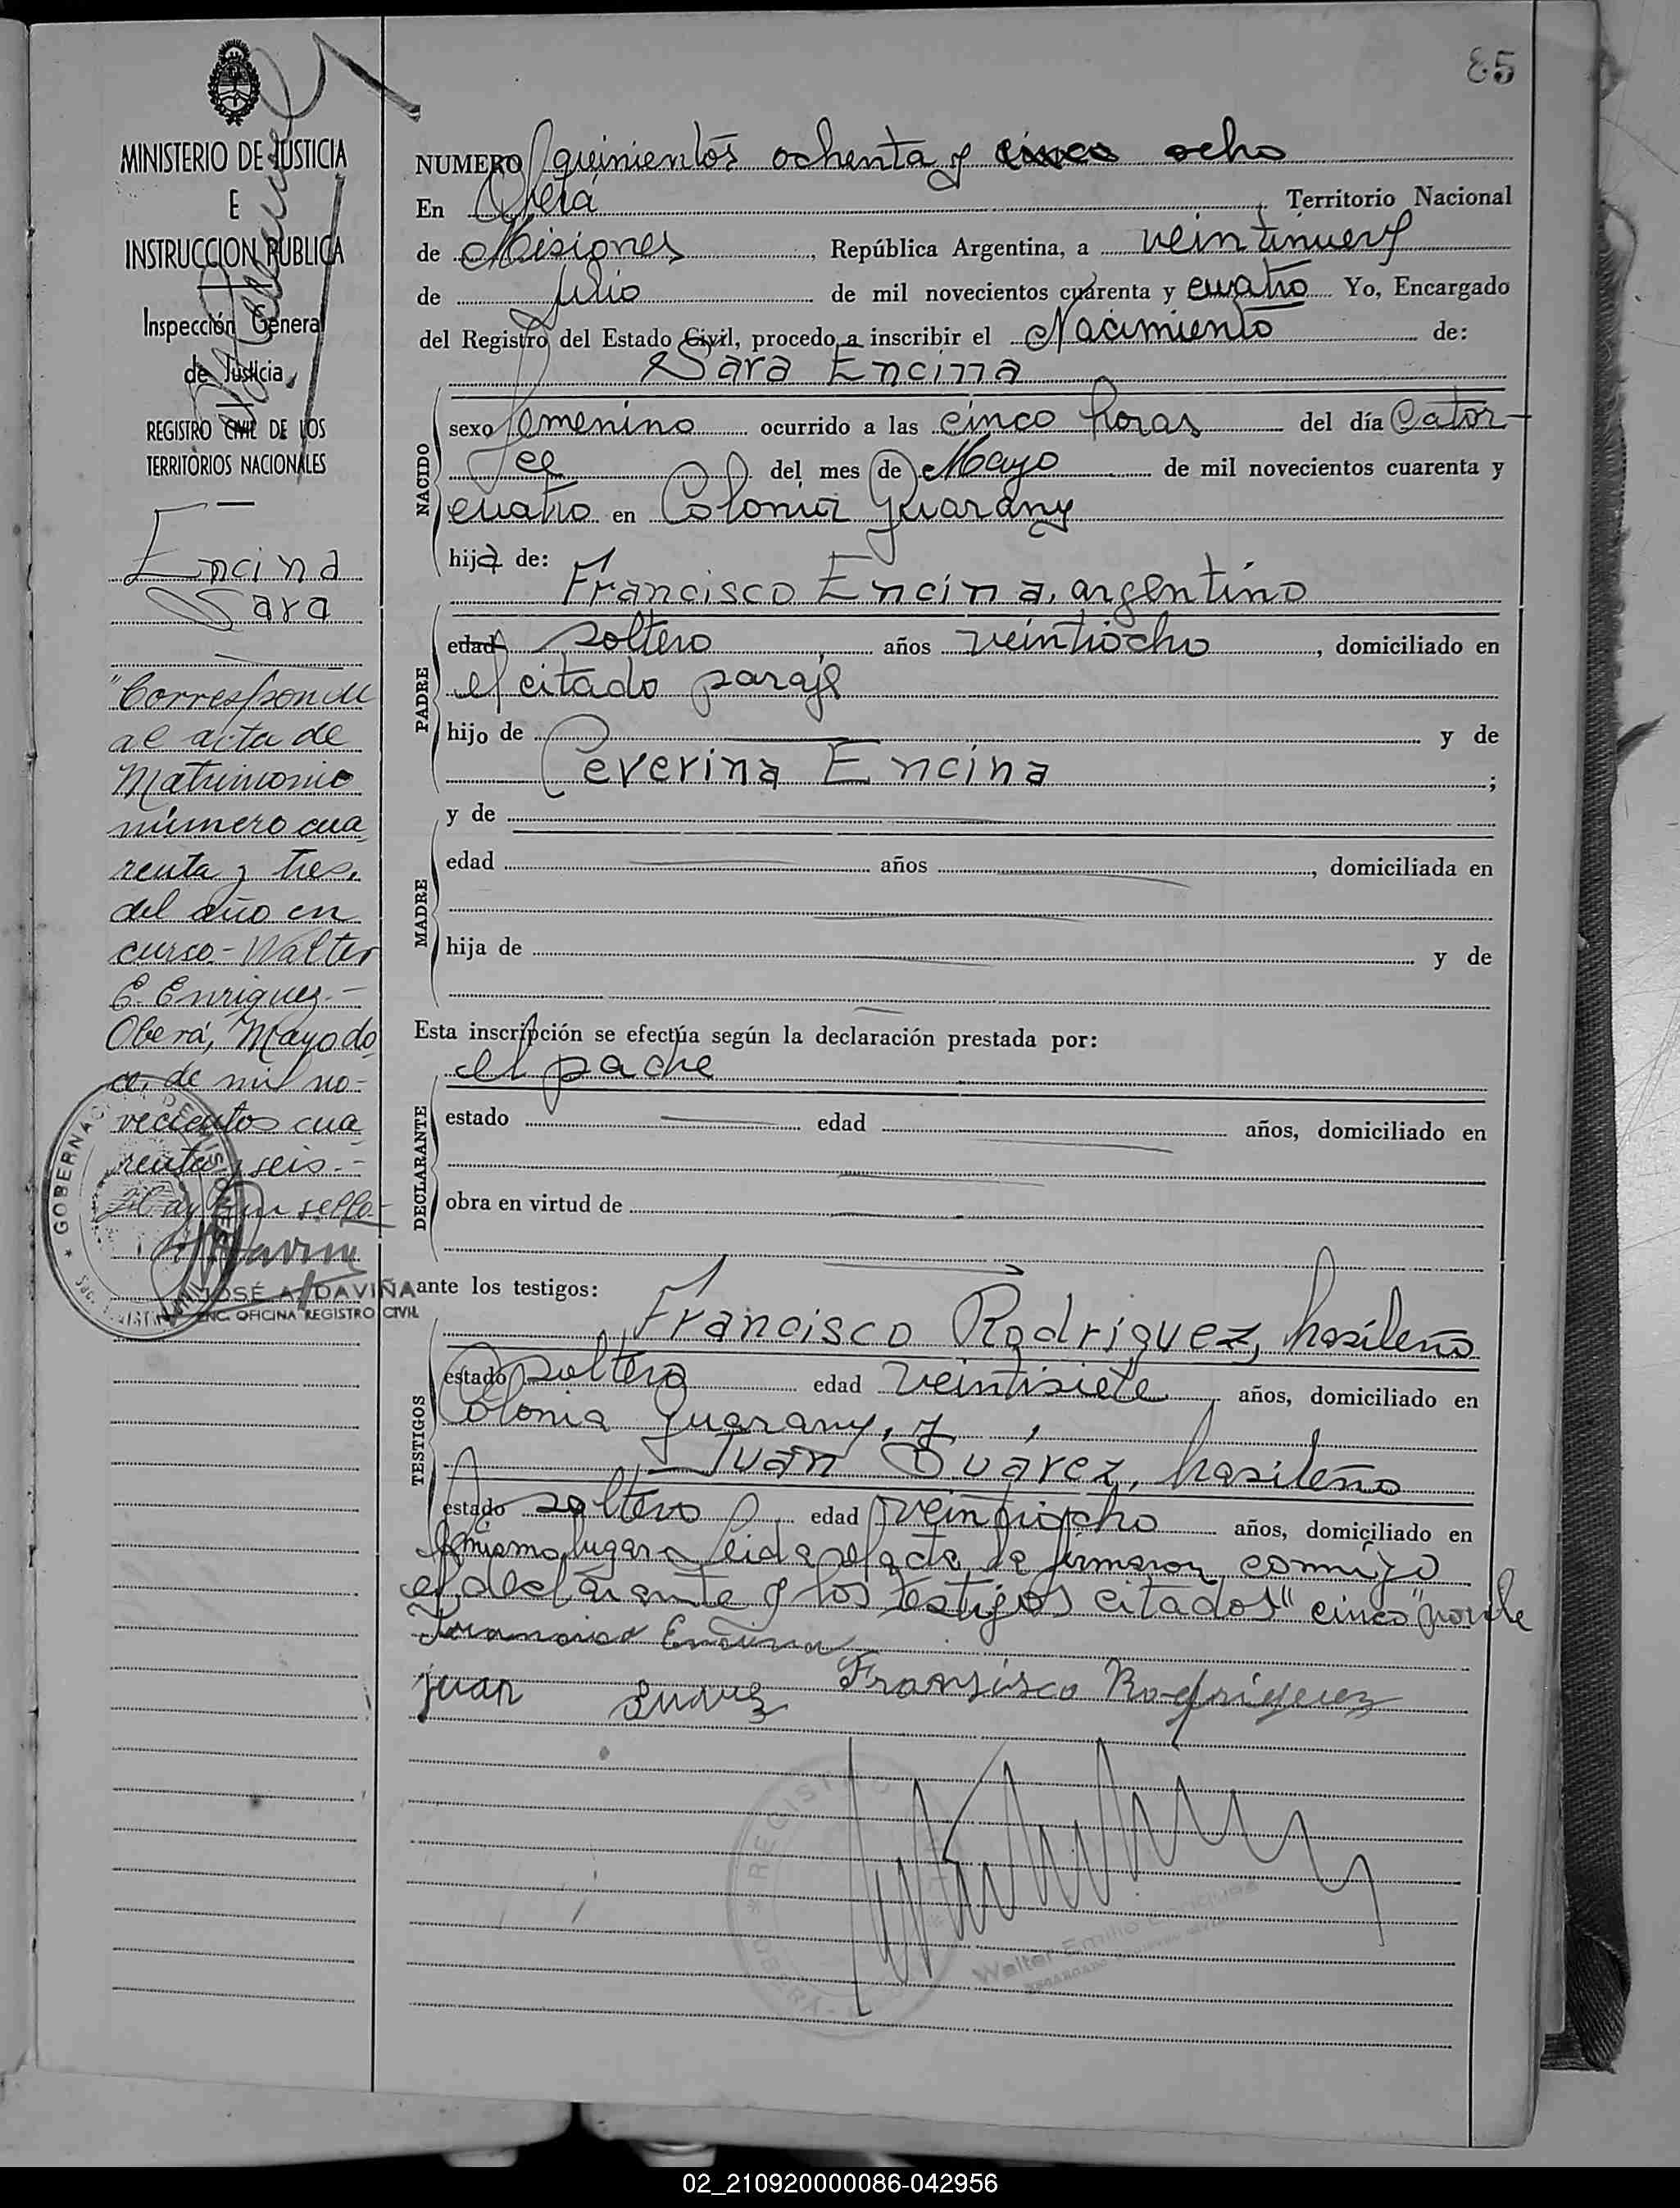 85
MINISTERIO DE JUSTICIA
E
INSTRUCCION PUBLICA
Inspección General
de Justicia
REGISTRO CIVIL DE LOS
TERRITORIOS NACIONALES
Encina
Sara
"Corresponde
al acta de
Matrimonio
número cua
renta y tres,
del año en
curso.- Walter
E. Enriquez.-
Oberá, Mayo do
ce, de mil no-
vecientos cua
renta y seis.-
Hay un sello-
JOSÉ A. DAVIÑA
ENC. OFICINA REGISTRO CIVIL
NUMERO quinientos ochenta y cinco ocho
En Oberá Territorio Nacional
de Misiones, República Argentina, a veintinueve
de Julio de mil novecientos cuarenta y cuatro Yo, Encargado
del Registro del Estado Civil, procedo a inscribir el Nacimiento de:
Sara Encina
NACIDO
sexo femenino ocurrido a las cinco horas del día Cator-
ce del mes de Mayo de mil novecientos cuarenta y
cuatro en Colonia Guarany
hija de:
Francisco Encina, argentino
PADRE
edad soltero, años veintiocho, domiciliado en
el citado paraje
hijo de y de
Ceverina Encina;
y de
MADRE
edad años, domiciliada en
hija de y de
Esta inscripción se efectúa según la declaración prestada por:
el padre
DECLARANTE
estado edad años, domiciliado en
obra en virtud de
ante los testigos:
Francisco Rodriguez, brasileño
TESTIGOS
estado soltero edad veintisiete años, domiciliado en
Colonia Guarany, y
Juan Suárez, brasileño
estado soltero edad veintiocho años, domiciliado en
el mismo lugar leida el acta la firmaron conmigo
el declarante y los testigos citados "cinco" no vale
Francisco Encina
juan Suarez Fransisco Rodriguez
REGISTRO
OBERÁ
Walter Emilio Enriquez
ENCARGADO REGISTRO CIVIL
02_210920000086-042956